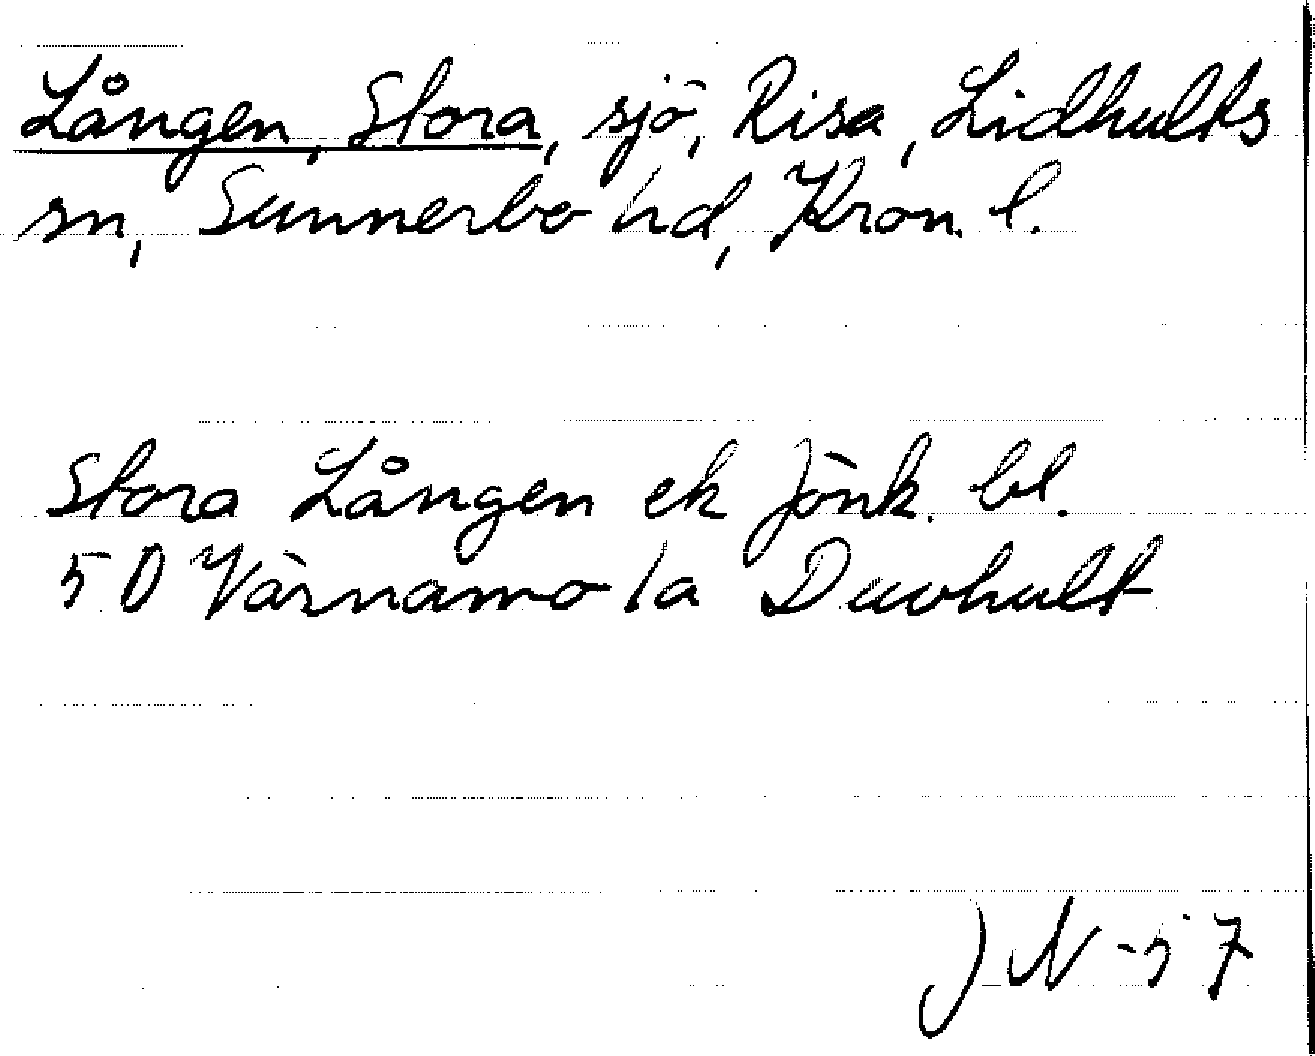 Lången, Stora, sjö, Risa, Lidhults
sn, Sunnerbo hd, Kron. l.
Stora Lången ek Jönk. bl.
5 D Värnamo 1a Duvhult
JN-57